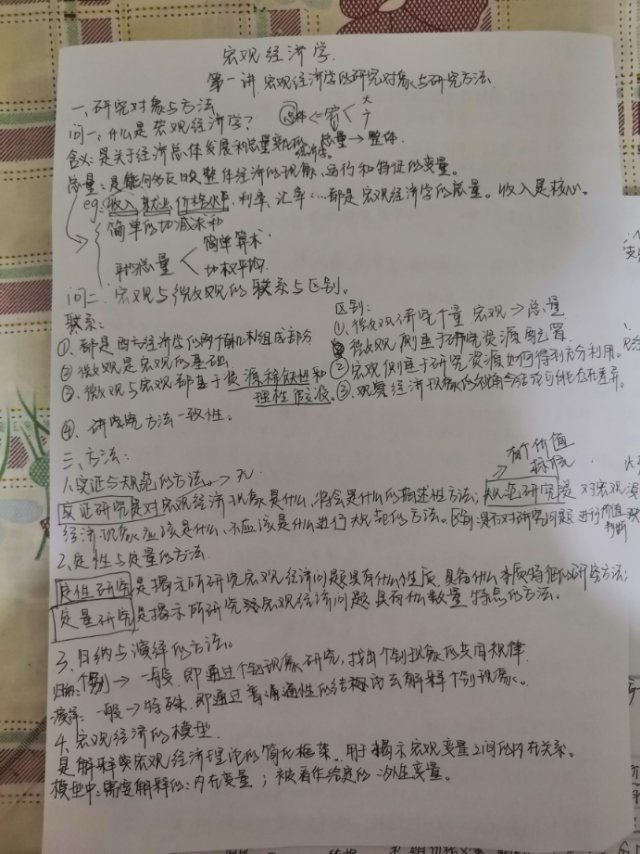 宏观经济学.
第一讲 宏观经济学的研究对象与研究方法.
一、研究对象与方法
问一、什么是宏观经济学?
含义:是关于经济总体发展和总量变化的 总量→整体.
总量:是能够反映整体经济的现象、运行和特征的变量。
eg:收入、就业、价格水平、利率、汇率…都是宏观经济学的总量。收入是核心。
简单的加减求和
平均总量 简单算术
加权平均.
问二、宏观与微观的联系与区别。
联系:
①、都是西方经济学的两个有机组成部分
②微观是宏观的基础
③、微观与宏观都基于资源稀缺性和
理性假设。
④、研究方法一致性。
区别:
①、微观研究个量 宏观→总量
②微观侧重于研究资源配置
宏观侧重于研究资源如何得到充分利用。
③、观察经济现象的视角会存在差异。
二、方法:
有价值
标准
1、实证与规范的方法。→无.
实证研究是对宏观经济现象是什么、将会是什么的描述性方法;规范研究是对宏观
经济现象应该是什么、不应该是什么进行规范的方法。区别:是否对研究问题进行价值
判断
2、定性与定量的方法
定性研究是揭示所研究宏观经济问题具有什么性质、具备什么本质特征的研究方法;
定量研究是揭示所研究宏观经济问题具有什么数量特点的方法。
3、归纳与演绎的方法。
归纳:个别→一般、即通过个别现象研究,找出个别现象的共同规律
演绎:一般→特殊.即通过普遍通性的结论去解释个别现象。
4、宏观经济的模型
是解释宏观经济理论的简化框架、用于揭示宏观变量之间的内在关系。
模型中:需要解释的:内在变量;被看作给定的:外生变量。